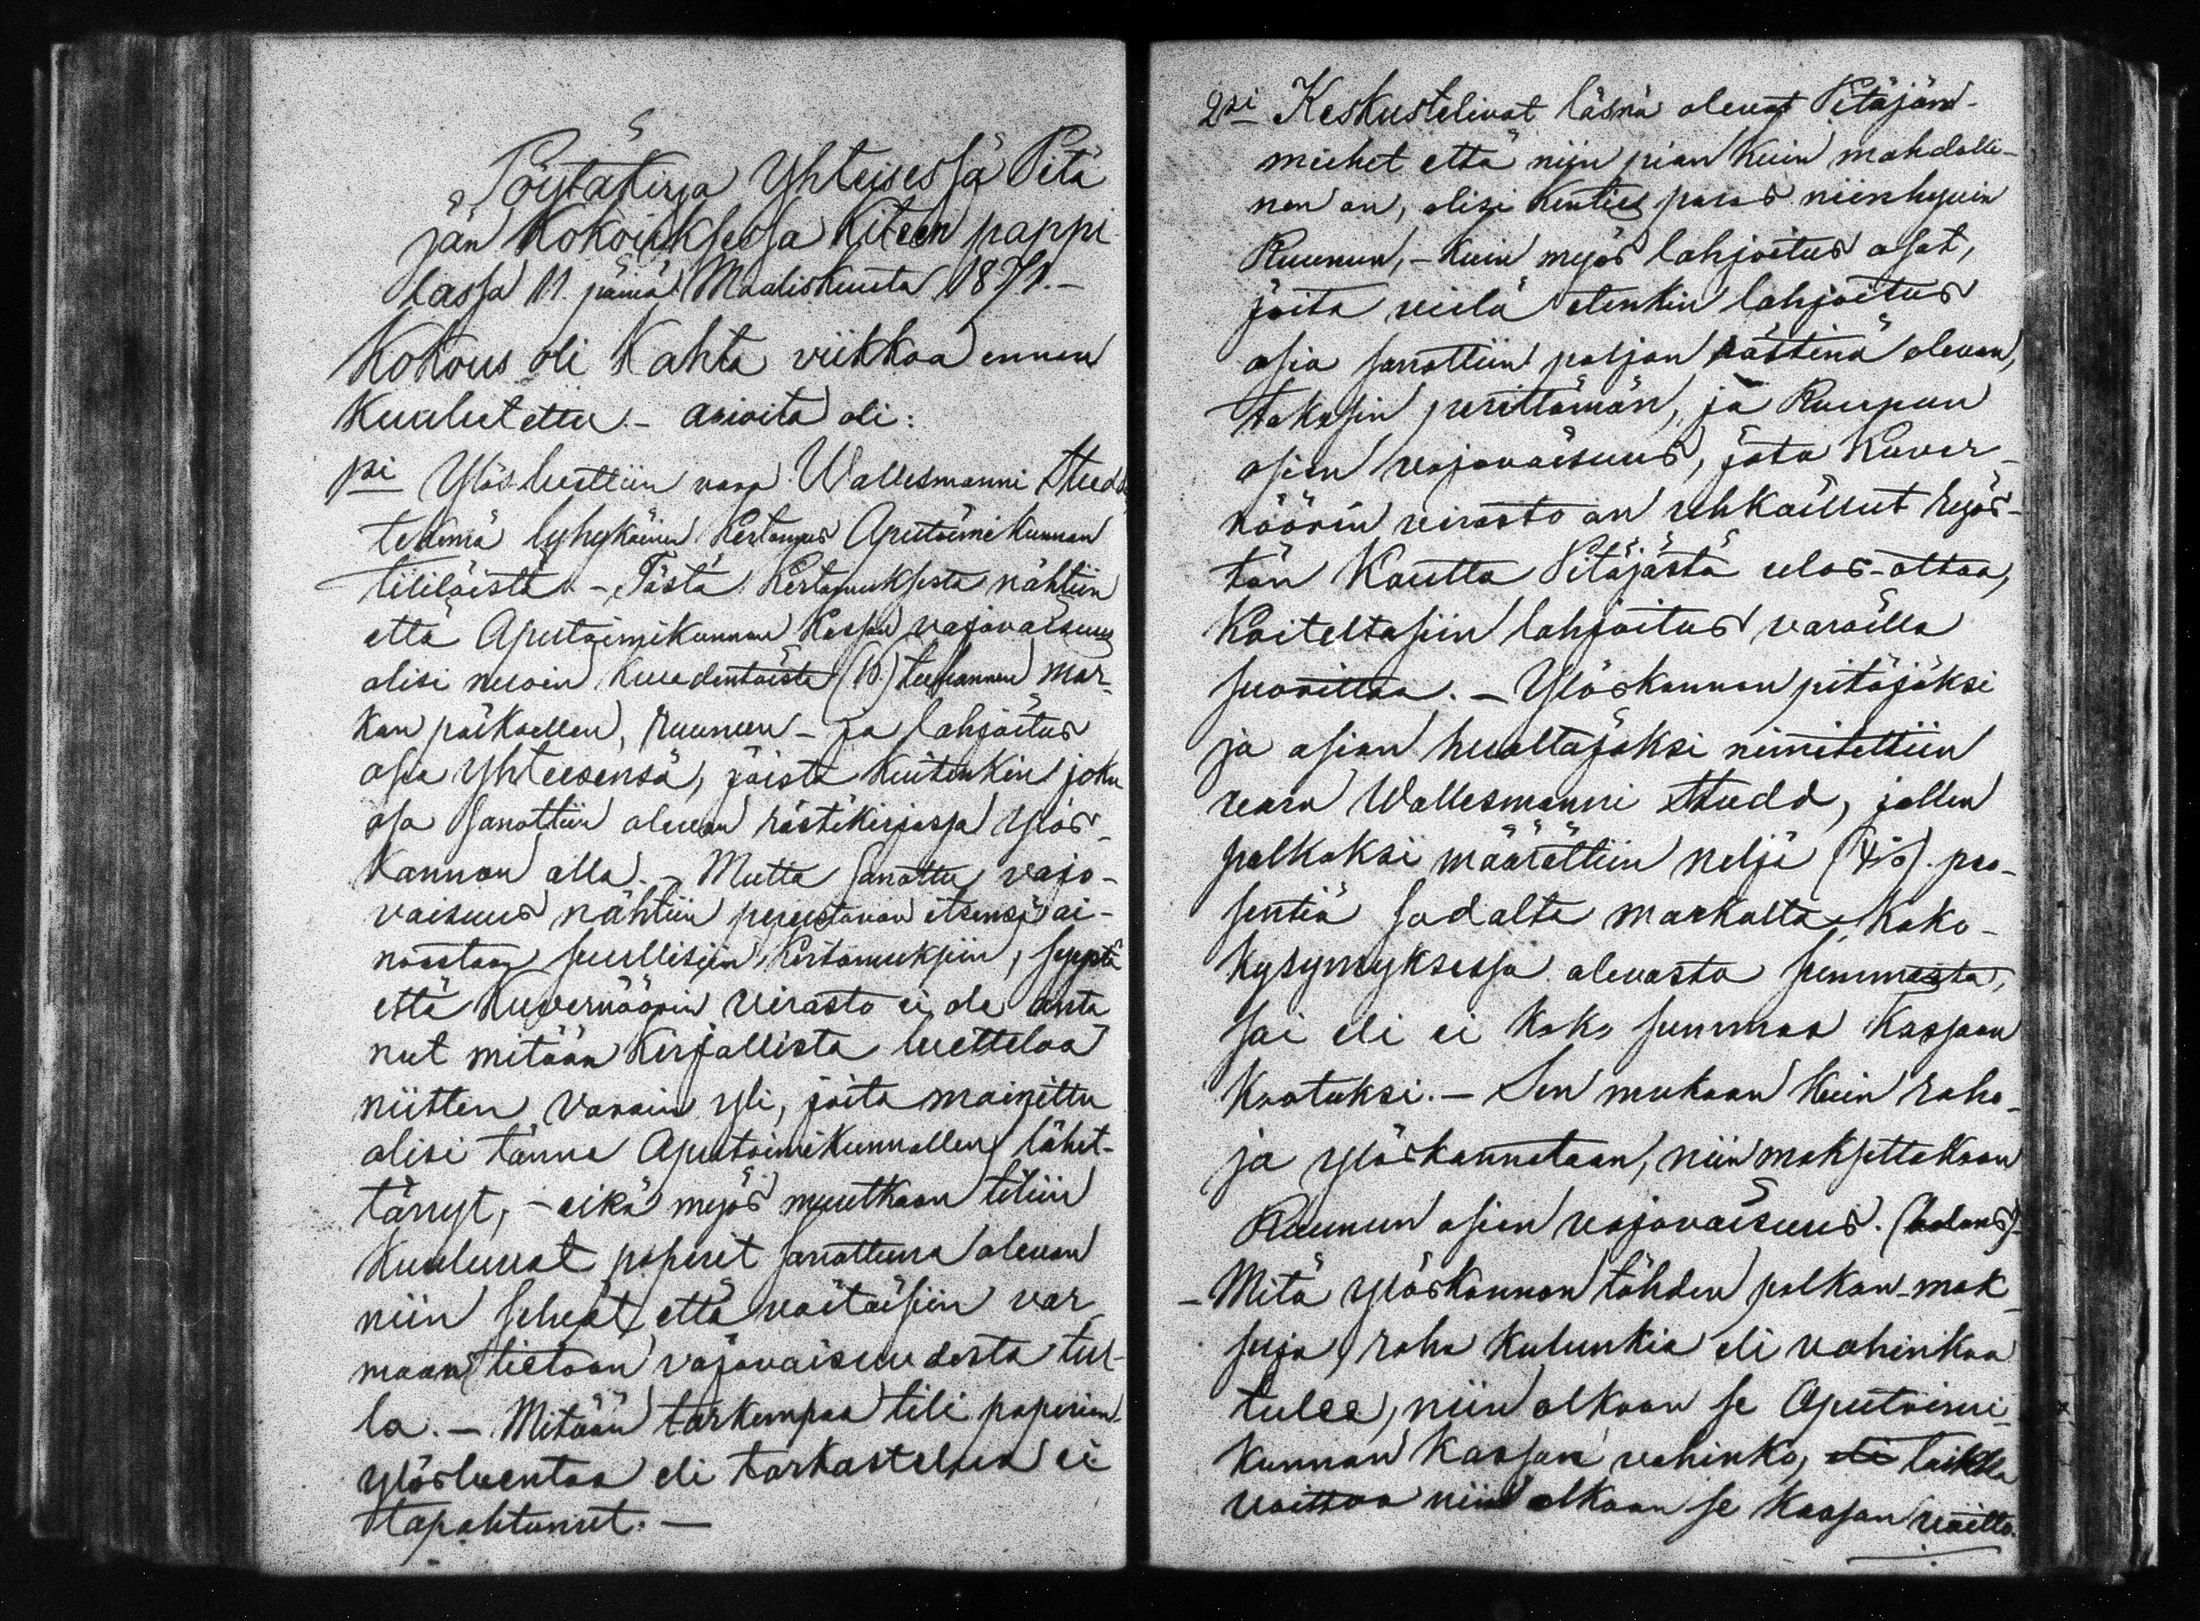 Pöytäkirja Yhteisessä Pitä
jän Kokouksessa Kiteen pappi
lassa 11. päivä Maaliskuuta 1871.-
Kokous oli Kahta viikkoa ennen
Kuulutettu.- asioita oli:
1si Ylös luettiin vara Wallesmanni
tekemä lyhykäinen Kertomus Aputoimikunnan
tililöistä.- Tästä Kertomuksesta nähtiin
että Aputoimikunnan Kassan vajavaisuus
olisi noin Kuudentoista (16) tuhannen mar-
kan paikoellen, ruunun- ja lahjoitus
osa Yhteensä, joista Kuitenkin joku
osa sanottiin olevan rästikirjassa Ylös-
Kannon alla.- Mutta sanottu vajo-
vaisuus nähtiin perustavan itsensä ai-
noastaan suullisiin Kertomuksiin, syystä
että Kuvernöörin Virasto ei ole anta
nut mitään Kirjallista luetteloa
niitten varain yli, joita mainittu
olisi tänne Aputoimikunnallen lähet-
tänyt,- eikä myös muutkaan tiliin
Kuuluvat paperit sanottuna olevan
niin selvät, että voitaisiin var-
maan tietoon vajavaisuudesta tul-
la.- Mitään tarkempaa tili paperien
ylösluentaa eli tarkastelua ei
tapahtunut.-
2si Keskustelivat läsnä olevat Pitäjän-
miehet että niin pian Kuin mahdolli-
nen on, olisi Kenties paras niinhyvin
Ruunun,- Kuin myös lahjoitus osat,
joita vielä etenkin lahjoitus
osia sanottiin paljon rästinä olevan,
takasin perittämän, ja Ruunun
osien vajavaisuus, jota Kuver-
nöörin virasto on uhkaillut ryös-
tön Kautta Pitäjästä ulos-ottaa,
Koiteltasiin lahjoitus varoilla
suorittaa.- Ylöskannon pitäjäksi
ja asian huoltajaksi nimitettiin
vara Wallesmanni jollen
palkaksi määrättiin neljä (4%). pro-
sentiä sadalta markalta Koko-
Kysymyksessä olevasta summasta,
sai eli ei Koko summaa Kassaan
Kootuksi.- Sen mukaan Kuin raho-
ja ylöskannetaan, niin maksettakoon
Ruunun osien vajavaisuus.
- Mitä ylöskannon tähden palkan-mak-
suja, raha Kulunkia eli vahinkoa
tulee, niin olkoon se Aputoimi-
Kunnan Kassan vahinko, taikka
voittoa niin olkoon se Kassan voitto.